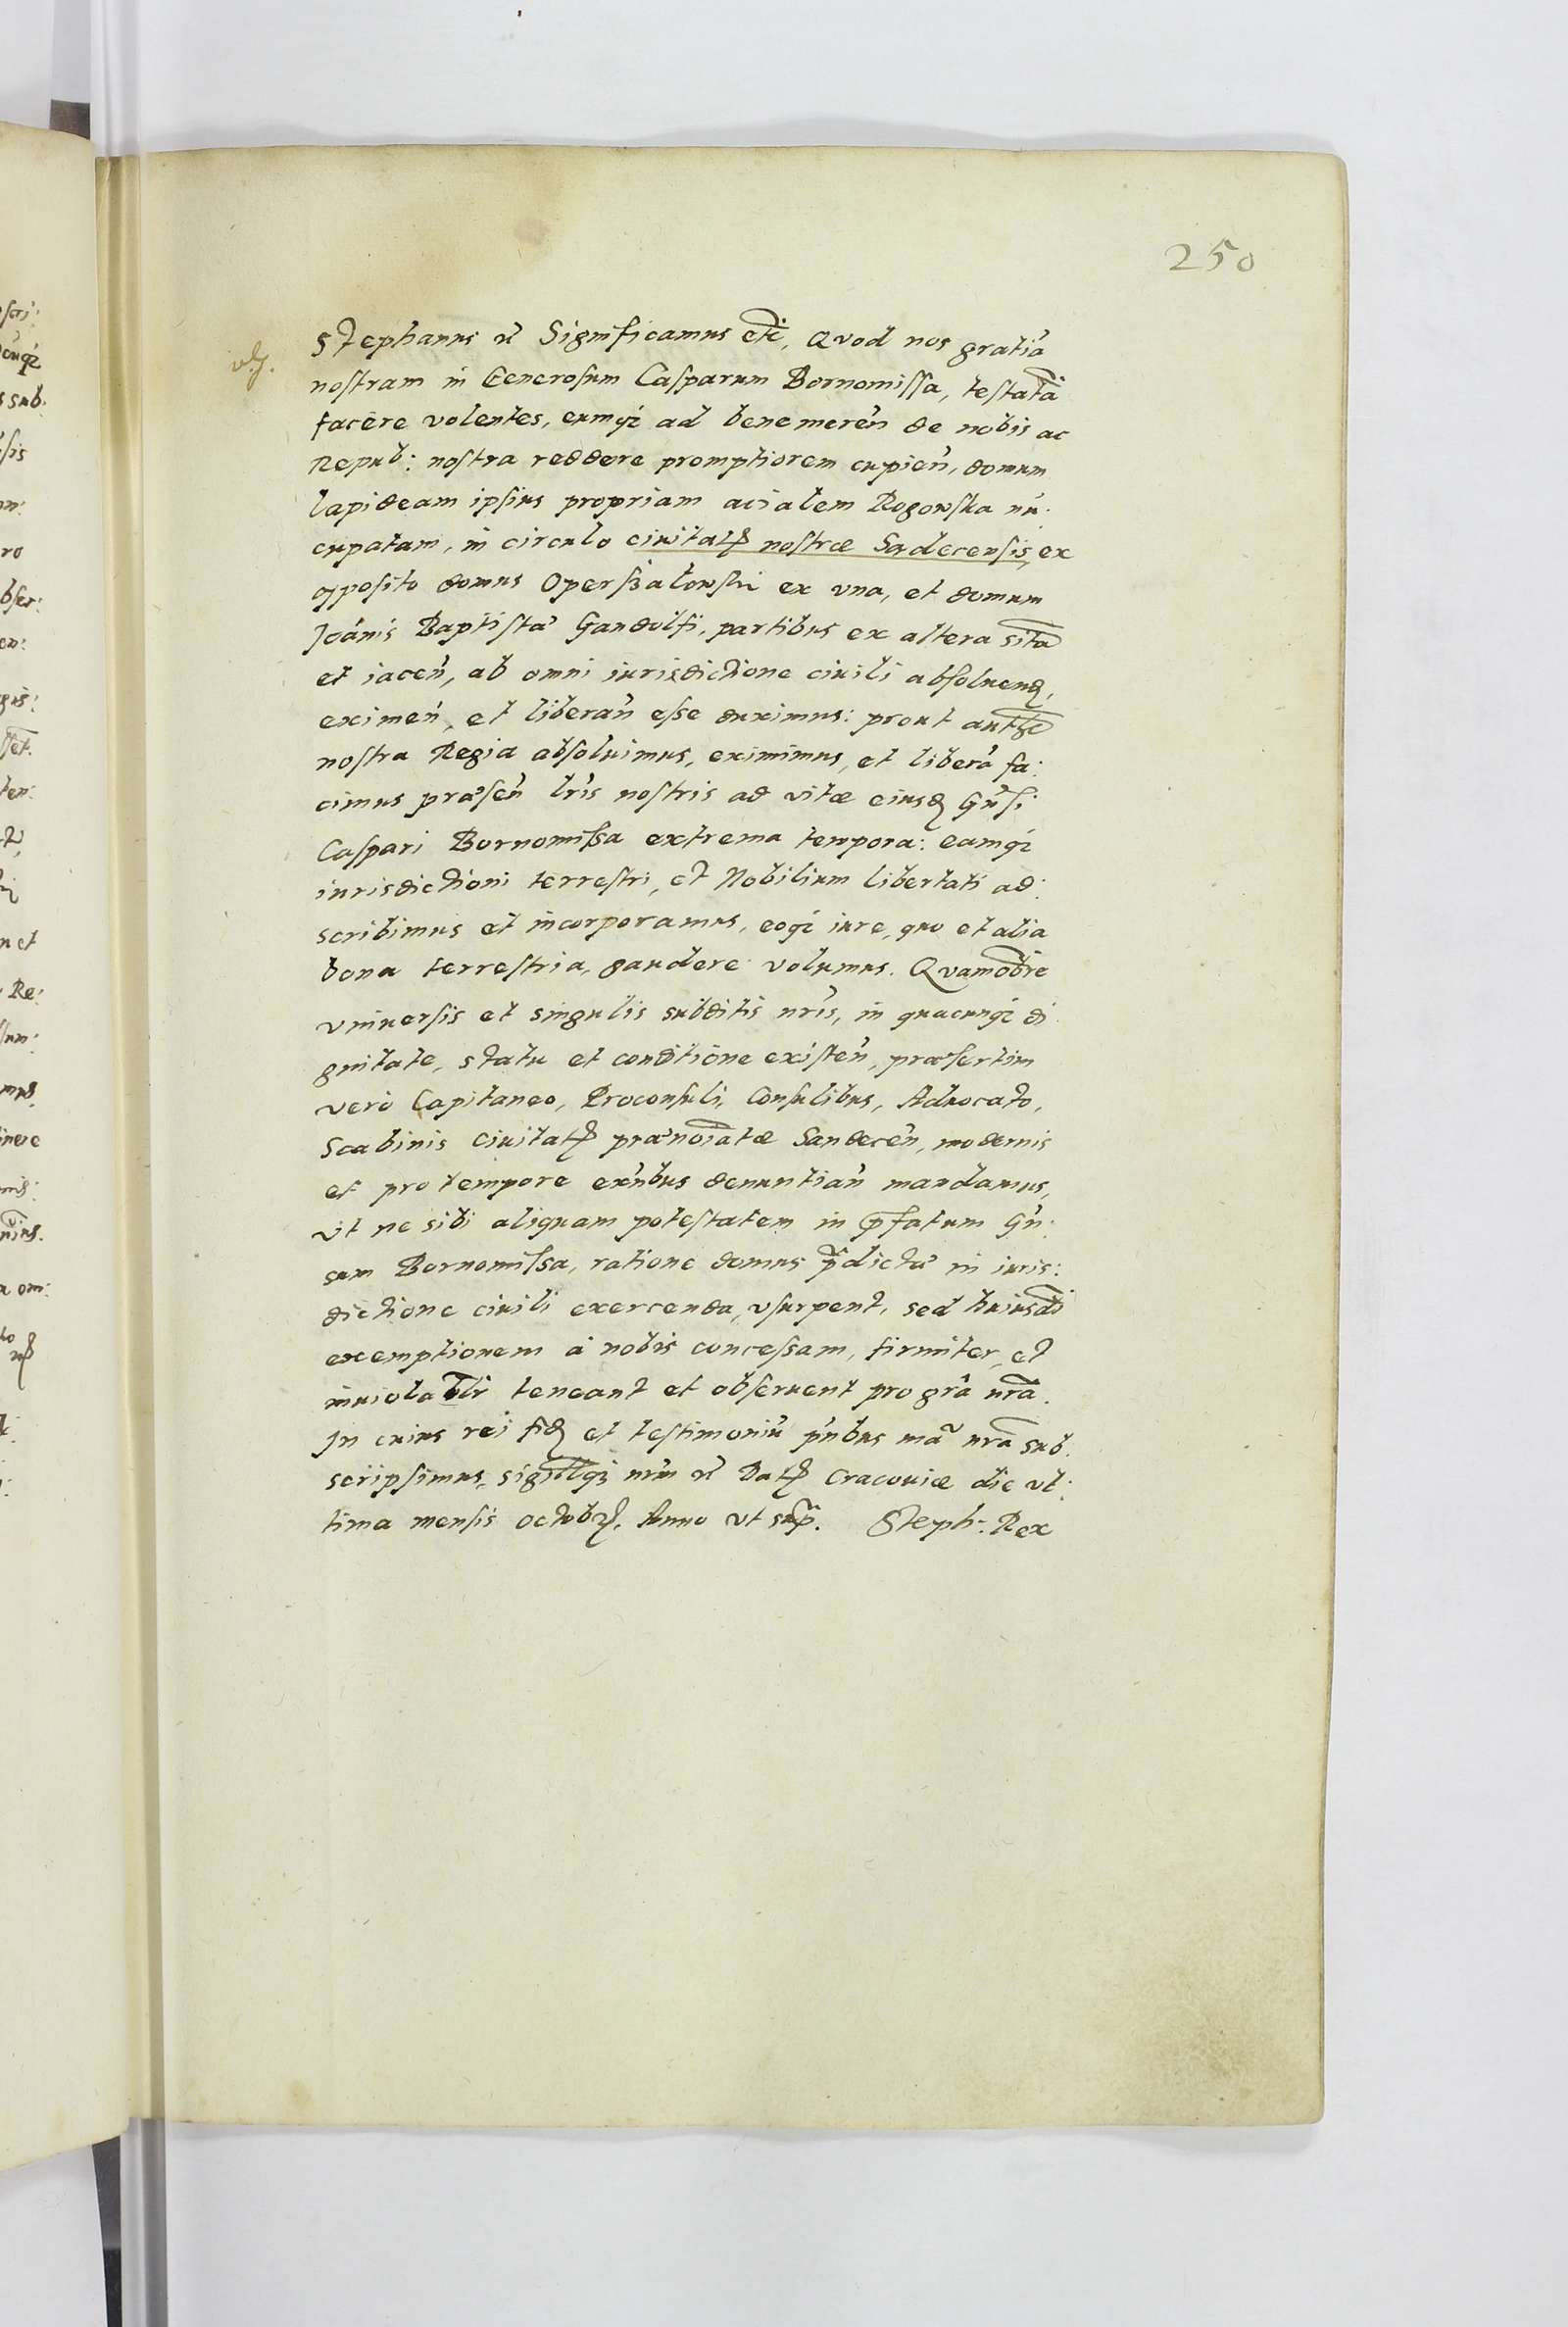 250
Stephanus etc Significamus etc, Quod nos gratiã
nostram in Generosum Casparum Bornomissa, testatã
facere volentes, eumq; ad bene meren̄ de nobis ac
Repub: nostra reddere promptiorem cupien̄, domum
lapideam ipsius propriam acialem Rogowska nu:
cupatam, in circulo ciuitatꝭ nostræ Sądecensis, ex
opposito domus Operszalowski ex vna, et domum
Joānis Baptistæ Gandolfi, partibus ex altera sitã
et iacen̄, ab omni iurisdictione ciuili absoluend,
eximen̄, et liberan̄ esse duximus: prout autħte
nostra Regia absoluimus, eximimus, et liberã fa:
cimus præsen̄ lr̄is nostris ad vitæ eiusd Gn̄si
Caspari Bornomissa extrema tempora: eamq;
iurisdictioni terrestri, et Nobilium libertati ad:
scribimus et incorporamus, eoq; iure, quo et alia
bona terrestria, gaudere volumus. Quamobr̄e
vniuersis et singulis subditis nr̄is, in quacunq; di
gnitate, statu et conditione existen̄, præsertim
vero Capitaneo, Proconsuli, Consulibus, Aduocato,
Scabinis Ciuitatꝭ prænoīatæ Sandecen̄, modernis
et pro tempore exn̄bus denuntian̄ mandamus,
vt ne sibi aliquam potestatem in p̄fatum Gn̄:
sum Bornomissa, ratione domus p̄dictæ in iuris:
dictione ciuili exercenda, vsurpent, sed huiusm̄di
exemptionem à nobis concessam, firmiter, et
inuiolabl̄r teneant et obseruent pro gr̄a nr̄a.
In cuius rei fid et testimoniũ pn̄tibus manũ nr̄a sub.
scripsimus, sigillq; nr̄m etc Datꝭ Cracouiæ die vl:
tima mensis octobrꝭ. Anno vt sup̄. Steph: Rex